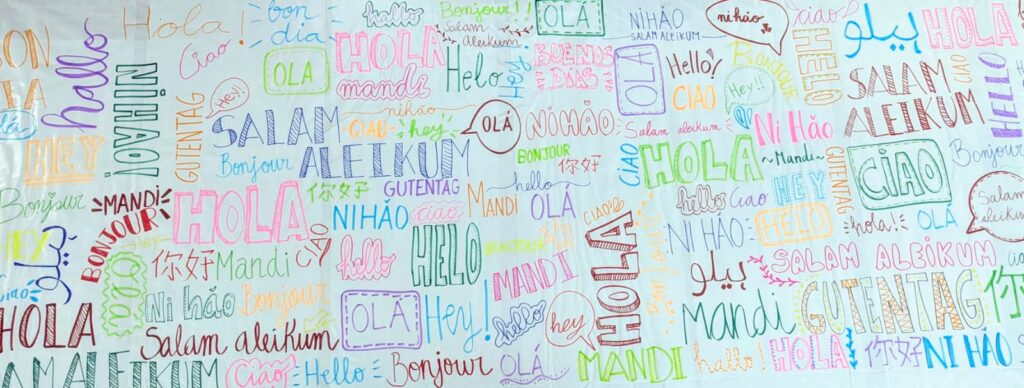 Hola!
bon dia
hallo
Bonjour!!
Salam Aleikum
OLÁ
NIHÃO
SALAM ALEIKUM
nihão
ciao
هيلو
HOLA
hallo
NIHAO!
Ciao
OLÁ
HOLA
mandi
Helo
Hey!
BUENOS DÍAS
OLÁ
Hello!
CIAO
BONJOUR
HELO
SALAM ALEIKUM
CIAO
HELLO
GUTENTAG
Hey!!
SALAM ALEIKUM
nihão
CIAO
hey
OLÁ
NIHÃO
Salam aleikum
Hey!
Ni Hão
HEY
Bonjour
BONJOUR
你好
CIAO
HOLA
~Mandi~
GUTENTAG
CIAO
Bonjour
Bonjour
MANDI
BONJOUR
HOLA
你好
GUTENTAG
NIHÃO
ciao
Mandi
hello
OLÁ
CIAO
hello
Ciao
HEY
HELO
hola!
OLÁ
Salam aleikum
HEY
هيلو
Olá
你好
Mandi
CIAO
hello
HELO
MANDI
HOLA
NI HÃO
هيلو
SALAM ALEIKUM
Ciao
HOLA
Ni hão
Bonjour
OLÁ
Hey!
hello
hey
Mandi
GUTENTAG
你
Salam aleikum
ALEIKUM
Ciao
Hello
Bonjour
OLÁ
MANDI
hallo!
HOLA
你好
NI HÃO